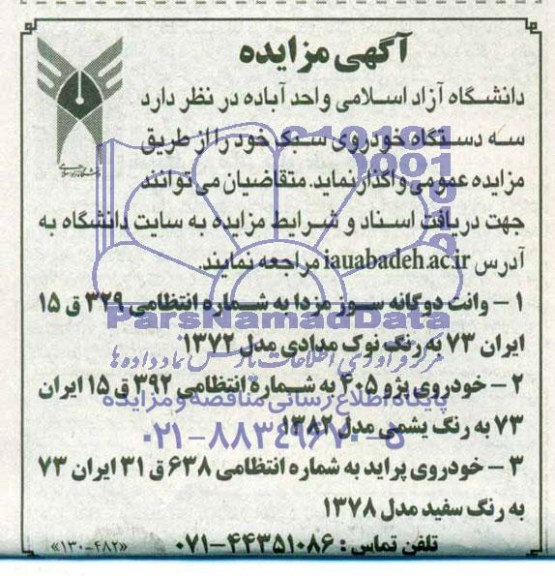 آگهی مزایده
دانشگاه آزاد اسلامی واحد آباده در نظر دارد
سه دستگاه خودروی سبک خود را از طریق
مزایده عمومی واگذار نماید. متقاضیان می توانند
جهت دریافت اسناد و شرایط مزایده به سایت دانشگاه به
آدرس iauabadeh.ac.ir مراجعه نمایند.
۱ – وانت دوگانه سوز مزدا به شماره انتظامی ۳۲۹ ق ۱۵
ParsNamadData
ایران ۷۳ به رنگ نوک مدادی مدل ۱۳۷۲
مرکز فرآوری اطلاعات پارس نماد داده ها
۲ – خودروی پژو ۴۰۵ به شماره انتظامی ۳۹۲ ق ۱۵ ایران
پایگاه اطلاع رسانی مناقصه و مزایده
۷۳ به رنگ یشمی مدل ۱۳۸۲
۰۲۱-۸۸۳۴۹۶۷۰-۵
۳ – خودروی پراید به شماره انتظامی ۶۳۸ ق ۳۱ ایران ۷۳
به رنگ سفید مدل ۱۳۷۸
تلفن تماس : ۰۷۱-۴۴۳۵۱۰۸۶
«۱۳۰-۴۸۲»